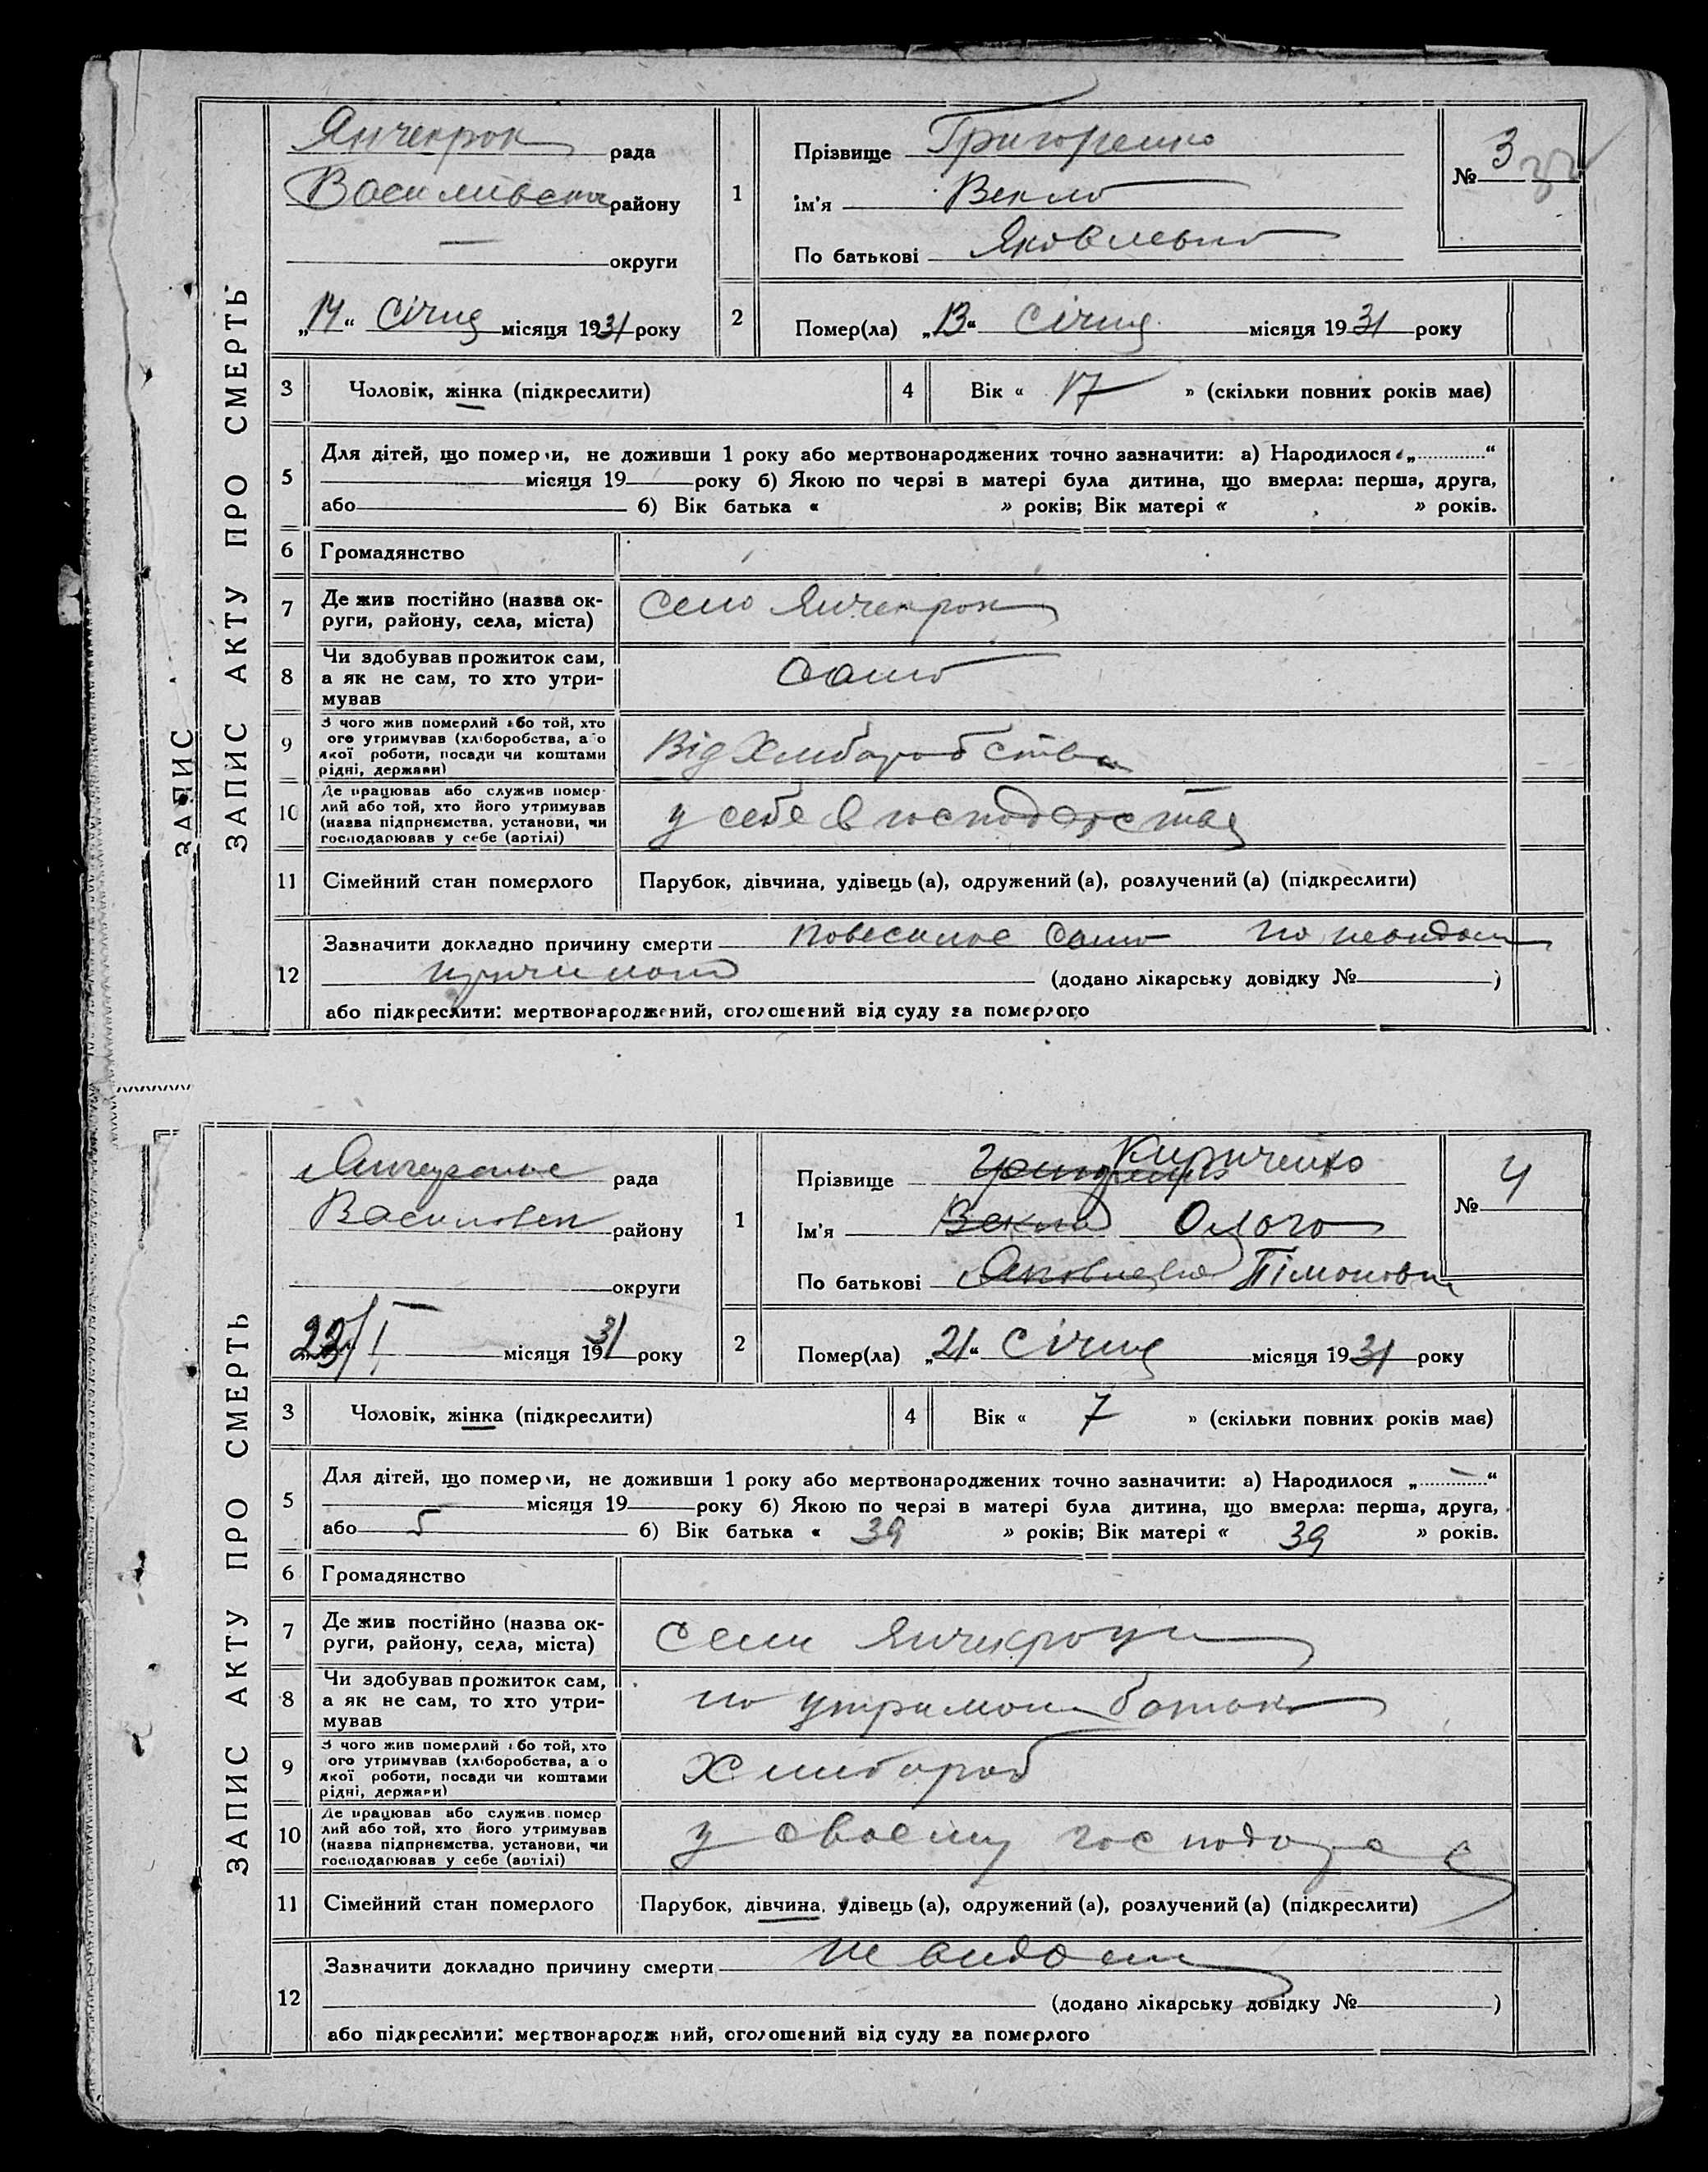 ЗАПИС
ЗАПИС АКТУ ПРО СМЕРТЬ
Янчекрок рада
Василивска району
— округи
„14“ Січня місяця 1931 року
1
Прізвище Григоренко
ім'я Векла
По батькові Яковлевна
№ 3
2
Помер(ла) „13“ Січня місяця 1931 року
3 Чоловік, жінка (підкреслити)
4 Вік « 17 » (скільки повних років має)
5
Для дітей, що померли, не доживши 1 року або мертвонароджених точно зазначити: а) Народилося „............“
місяця 19 року б) Якою по черзі в матері була дитина, що вмерла: перша, друга,
або б) Вік батька « » років; Вік матері « » років.
6 Громадянство
7
Де жив постійно (назва ок-
руги, району, села, міста)
село Янчекрок
8
Чи здобував прожиток сам,
а як не сам, то хто утри-
мував
сама
9
З чого жив померлий або той, хто
ого утримував (хліборобства, а о
якої роботи, посади чи коштами
рідні, держави)
Від Хлиборобства
10
Де працював або служив помер-
лий або той, хто його утримував
(назва підприємства, установи, чи
господарював у себе (артілі)
у себе в господарстве
11 Сімейний стан померлого
Парубок, дівчина, удівець (а), одружений (а), розлучений (а) (підкреслити)
12
Зазначити докладно причину смерти повесилас сама по неведом
(додано лікарську довідку № )
або підкреслити: мертвонароджений, оголошений від суду за померлого
ЗАПИС АКТУ ПРО СМЕРТЬ
рада
Василовск району
округи
23/I місяця 1931 року
1
Прізвище Григоренко Кириченко
Ім'я Векла Ольга
По батькові Яковлевна Тімоновн
№ 4
2
Помер(ла) „21“ Січня місяця 1931 року
3 Чоловік, жінка (підкреслити)
4 Вік « 7 » (скільки повних років має)
5
Для дітей, що померли, не доживши 1 року або мертвонароджених точно зазначити: а) Народилося „............“
місяця 19 року б) Якою по черзі в матері була дитина, що вмерла: перша, друга,
або 5 б) Вік батька « 39 » років; Вік матері « 39 » років.
6 Громадянство
7
Де жив постійно (назва ок-
руги, району, села, міста)
сели Янчекроци
8
Чи здобував прожиток сам,
а як не сам, то хто утри-
мував
на утриман батька
9
З чого жив померлий або той, хто
ого утримував (хліборобства, а о
якої роботи, посади чи коштами
рідні, держави)
Хлибороб
10
Де працював або служив помер
лий або той, хто його утримував
(назва підприємства, установи, чи
господарював у себе (артілі)
у своему господар с
11 Сімейний стан померлого
Парубок, дівчина, удівець (а), одружений (а), розлучений (а) (підкреслити)
12
Зазначити докладно причину смерти
(додано лікарську довідку № )
або підкреслити: мертвонародж ний, оголошений від суду за померлого